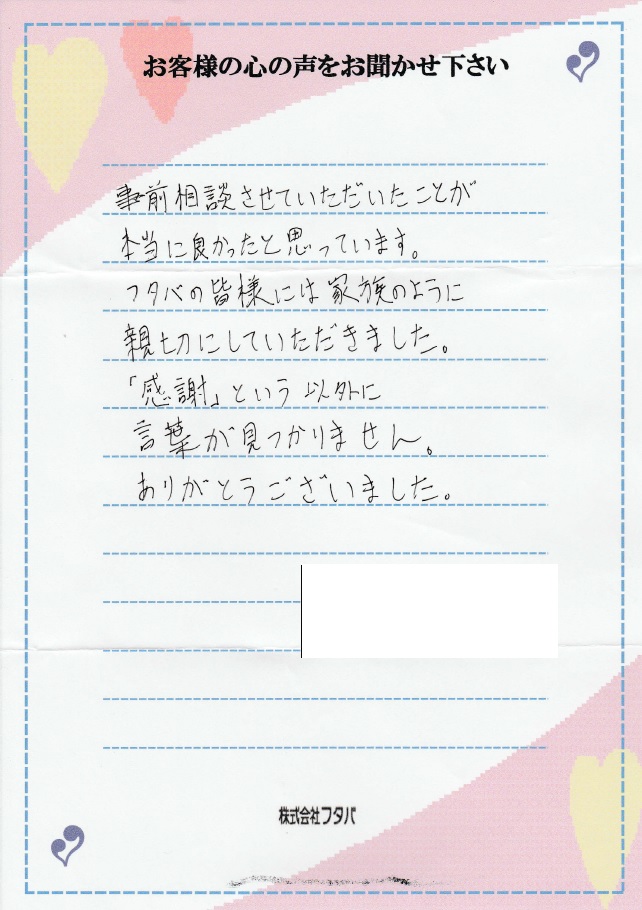 お客様の心の声をお聞かせ下さい
事前相談させていただいたことが
本当に良かったと思っています。
フタバの皆様には家族のように
親切にしていただきました。
「感謝」という以外に
言葉が見つかりません。
ありがとうございました。
株式会社フタバ